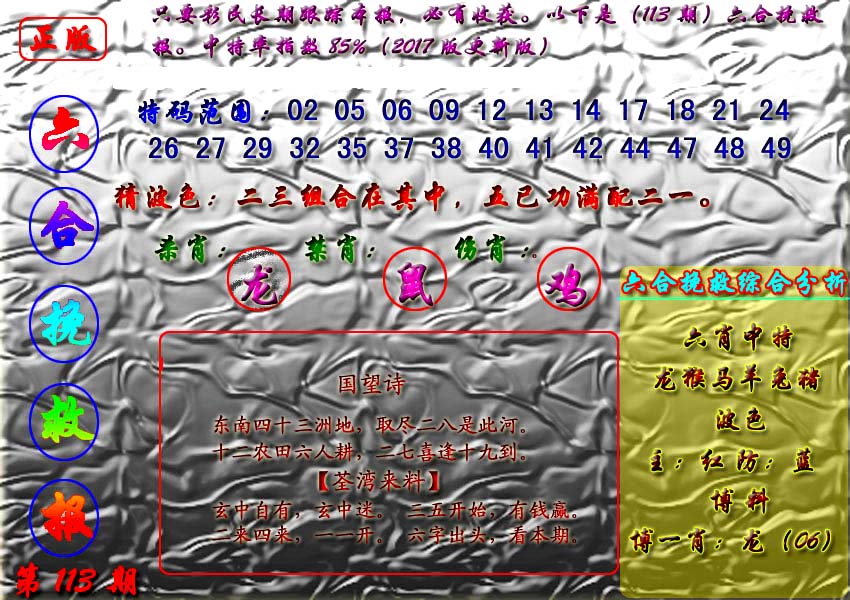 正版
只要彩民长期跟踪本报，必有收获。以下是（113 期）六合挽救
报。中特率指数 85%（2017 版更新版）
六合挽救报
第 113 期
特码范围：02 05 06 09 12 13 14 17 18 21 24
26 27 29 32 35 37 38 40 41 42 44 47 48 49
猜波色：二三组合在其中，五已功满配二一。
杀肖：龙 禁肖：鼠 伤肖：鸡
国望诗
东南四十三洲地，取尽二八是此河。
十二农田六人耕，二七喜逢十九到。
【荃湾来料】
玄中自有，玄中迷。 三五开始，有钱赢。
二来四来，一一开。 六字出头，看本期。
六合挽救综合分析
六肖中特
龙猴马羊兔猪
波色
主：红防：蓝
博料
博一肖：龙（06）